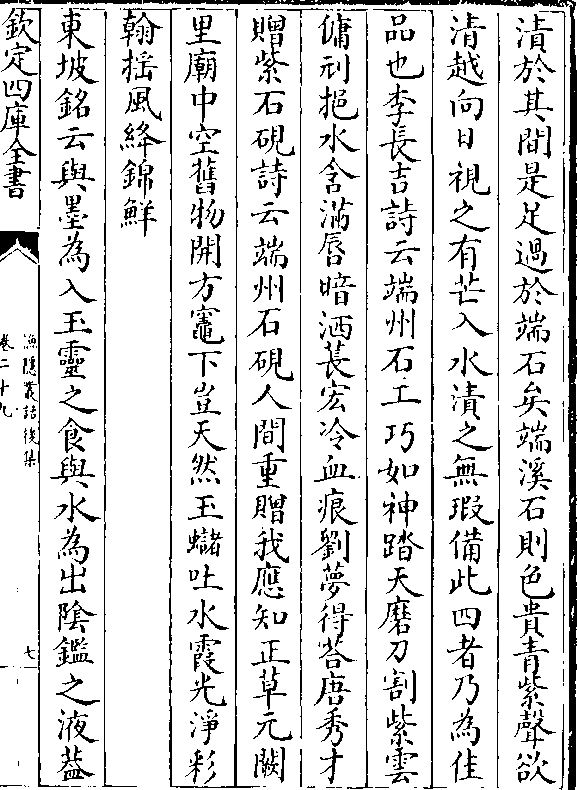 漬於其間是足過於端石矣端溪石則色貴青紫聲欲
清越向日視之有芒入水漬之無瑕備此四者乃為佳
品也李長吉詩云端州石工巧如神踏天磨刀割紫雲
傭刓抱水含滿唇暗洒萇宏冷血痕劉夢得荅唐秀才
贈紫石硯詩云端州石硯人間重贈我應知正草元闕
里廟中空舊物開方竈下豈天然玉蠩吐水霞光淨彩
翰揺風絳錦鮮
東坡銘云與墨為入玉靈之食與水為出陰鑑之液葢
欽定四庫全書
漁隱叢話後集
卷二十九
七